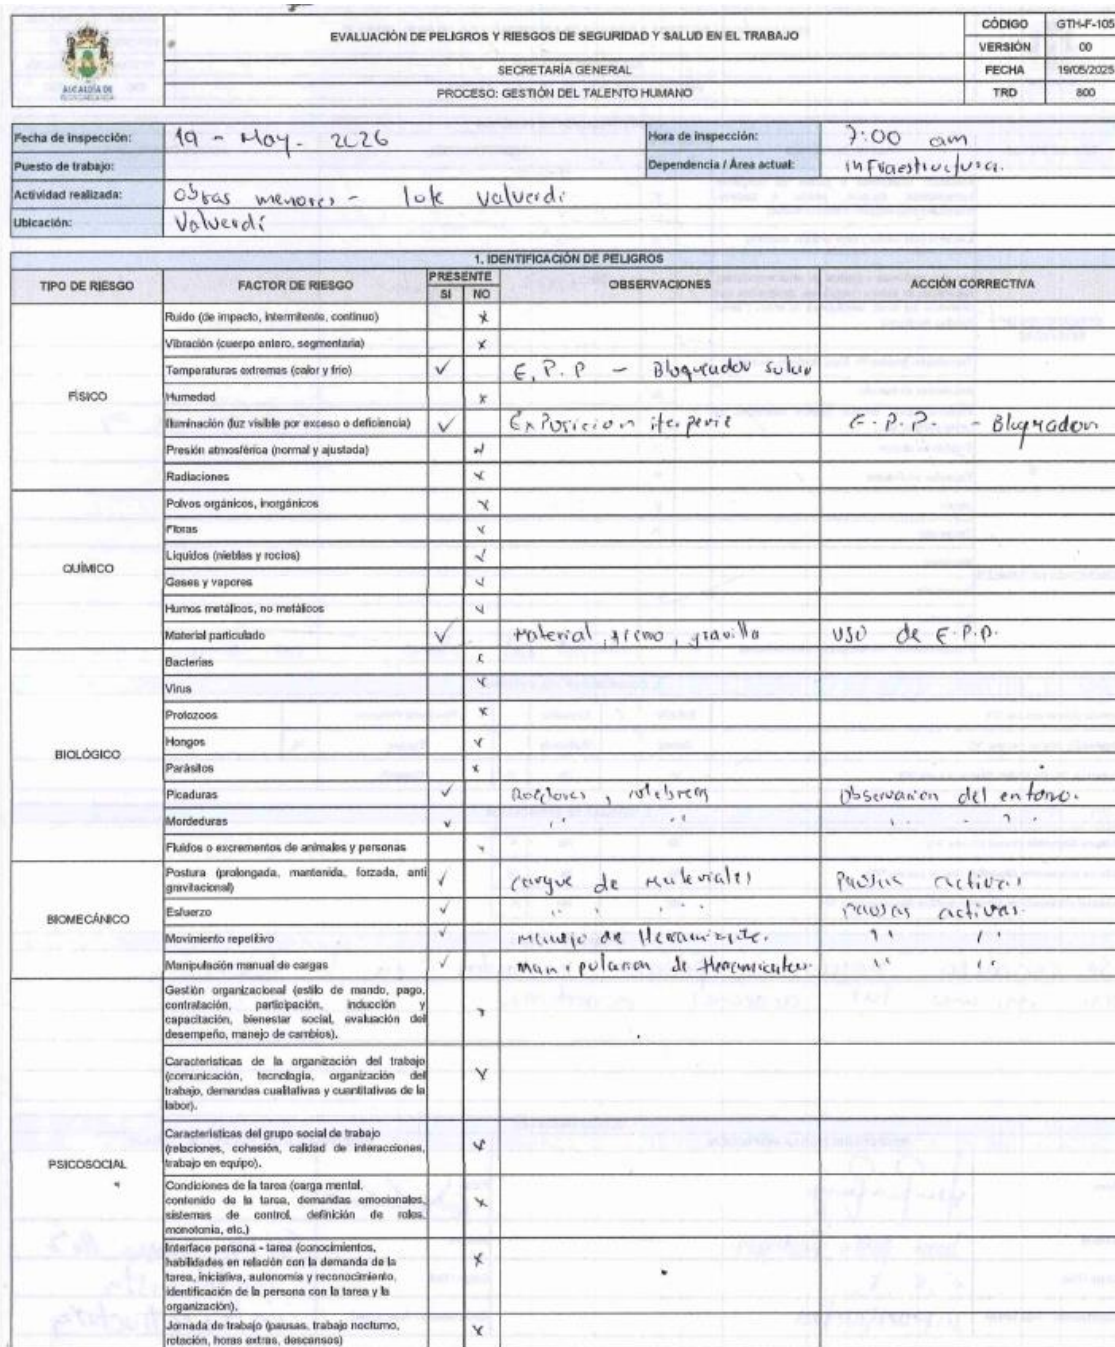 EVALUACIÓN DE PELIGROS Y RIESGOS DE SEGURIDAD Y SALUD EN EL TRABAJO
CÓDIGO GTH-F-105
VERSIÓN 00
SECRETARÍA GENERAL
FECHA 19/05/2025
PROCESO: GESTIÓN DEL TALENTO HUMANO
TRD 800
ALCALDÍA DE
Fecha de inspección: 19 - May. 2026 Hora de inspección: 7:00 am
Puesto de trabajo: Dependencia / Área actual: infraestructura.
Actividad realizada: Obras menores - lote Valverdi
Ubicación: Valverdi
1. IDENTIFICACIÓN DE PELIGROS
TIPO DE RIESGO FACTOR DE RIESGO PRESENTE OBSERVACIONES ACCIÓN CORRECTIVA
SI NO
FÍSICO
Ruido (de impacto, intermitente, continuo) x
Vibración (cuerpo entero, segmentaria) x
Temperaturas extremas (calor y frío) ✓ E.P.P - Bloqueador solar
Humedad x
Iluminación (luz visible por exceso o deficiencia) ✓ Exposicion E.P.P. - Bloqueador
Presión atmosférica (normal y ajustada) x
Radiaciones x
QUÍMICO
Polvos orgánicos, inorgánicos x
Fibras x
Líquidos (nieblas y rocíos) ✓
Gases y vapores x
Humos metálicos, no metálicos x
Material particulado ✓ Material, gravilla USO de E.P.P.
BIOLÓGICO
Bacterias x
Virus x
Protozoos x
Hongos x
Parásitos x
Picaduras ✓ Roedores, Observacion del entorno.
Mordeduras ✓ '' '' '' ''
Fluidos o excrementos de animales y personas x
BIOMECÁNICO
Postura (prolongada, mantenida, forzada, anti gravitacional) ✓ cargue de Materiales Pausas activas
Esfuerzo ✓ '' '' pausas activas.
Movimiento repetitivo ✓ manejo de '' ''
Manipulación manual de cargas ✓ manipulacion de '' ''
PSICOSOCIAL
Gestión organizacional (estilo de mando, pago,
contratación, participación, inducción y
capacitación, bienestar social, evaluación del
desempeño, manejo de cambios). x
Características de la organización del trabajo
(comunicación, tecnología, organización del
trabajo, demandas cualitativas y cuantitativas de la
labor). x
Características del grupo social de trabajo
(relaciones, cohesión, calidad de interacciones,
trabajo en equipo). x
Condiciones de la tarea (carga mental,
contenido de la tarea, demandas emocionales,
sistemas de control, definición de roles,
monotonía, etc.) x
Interface persona - tarea (conocimientos,
habilidades en relación con la demanda de la
tarea, iniciativa, autonomía y reconocimiento,
identificación de la persona con la tarea y la
organización). x
Jornada de trabajo (pausas, trabajo nocturno,
rotación, horas extras, descansos) x